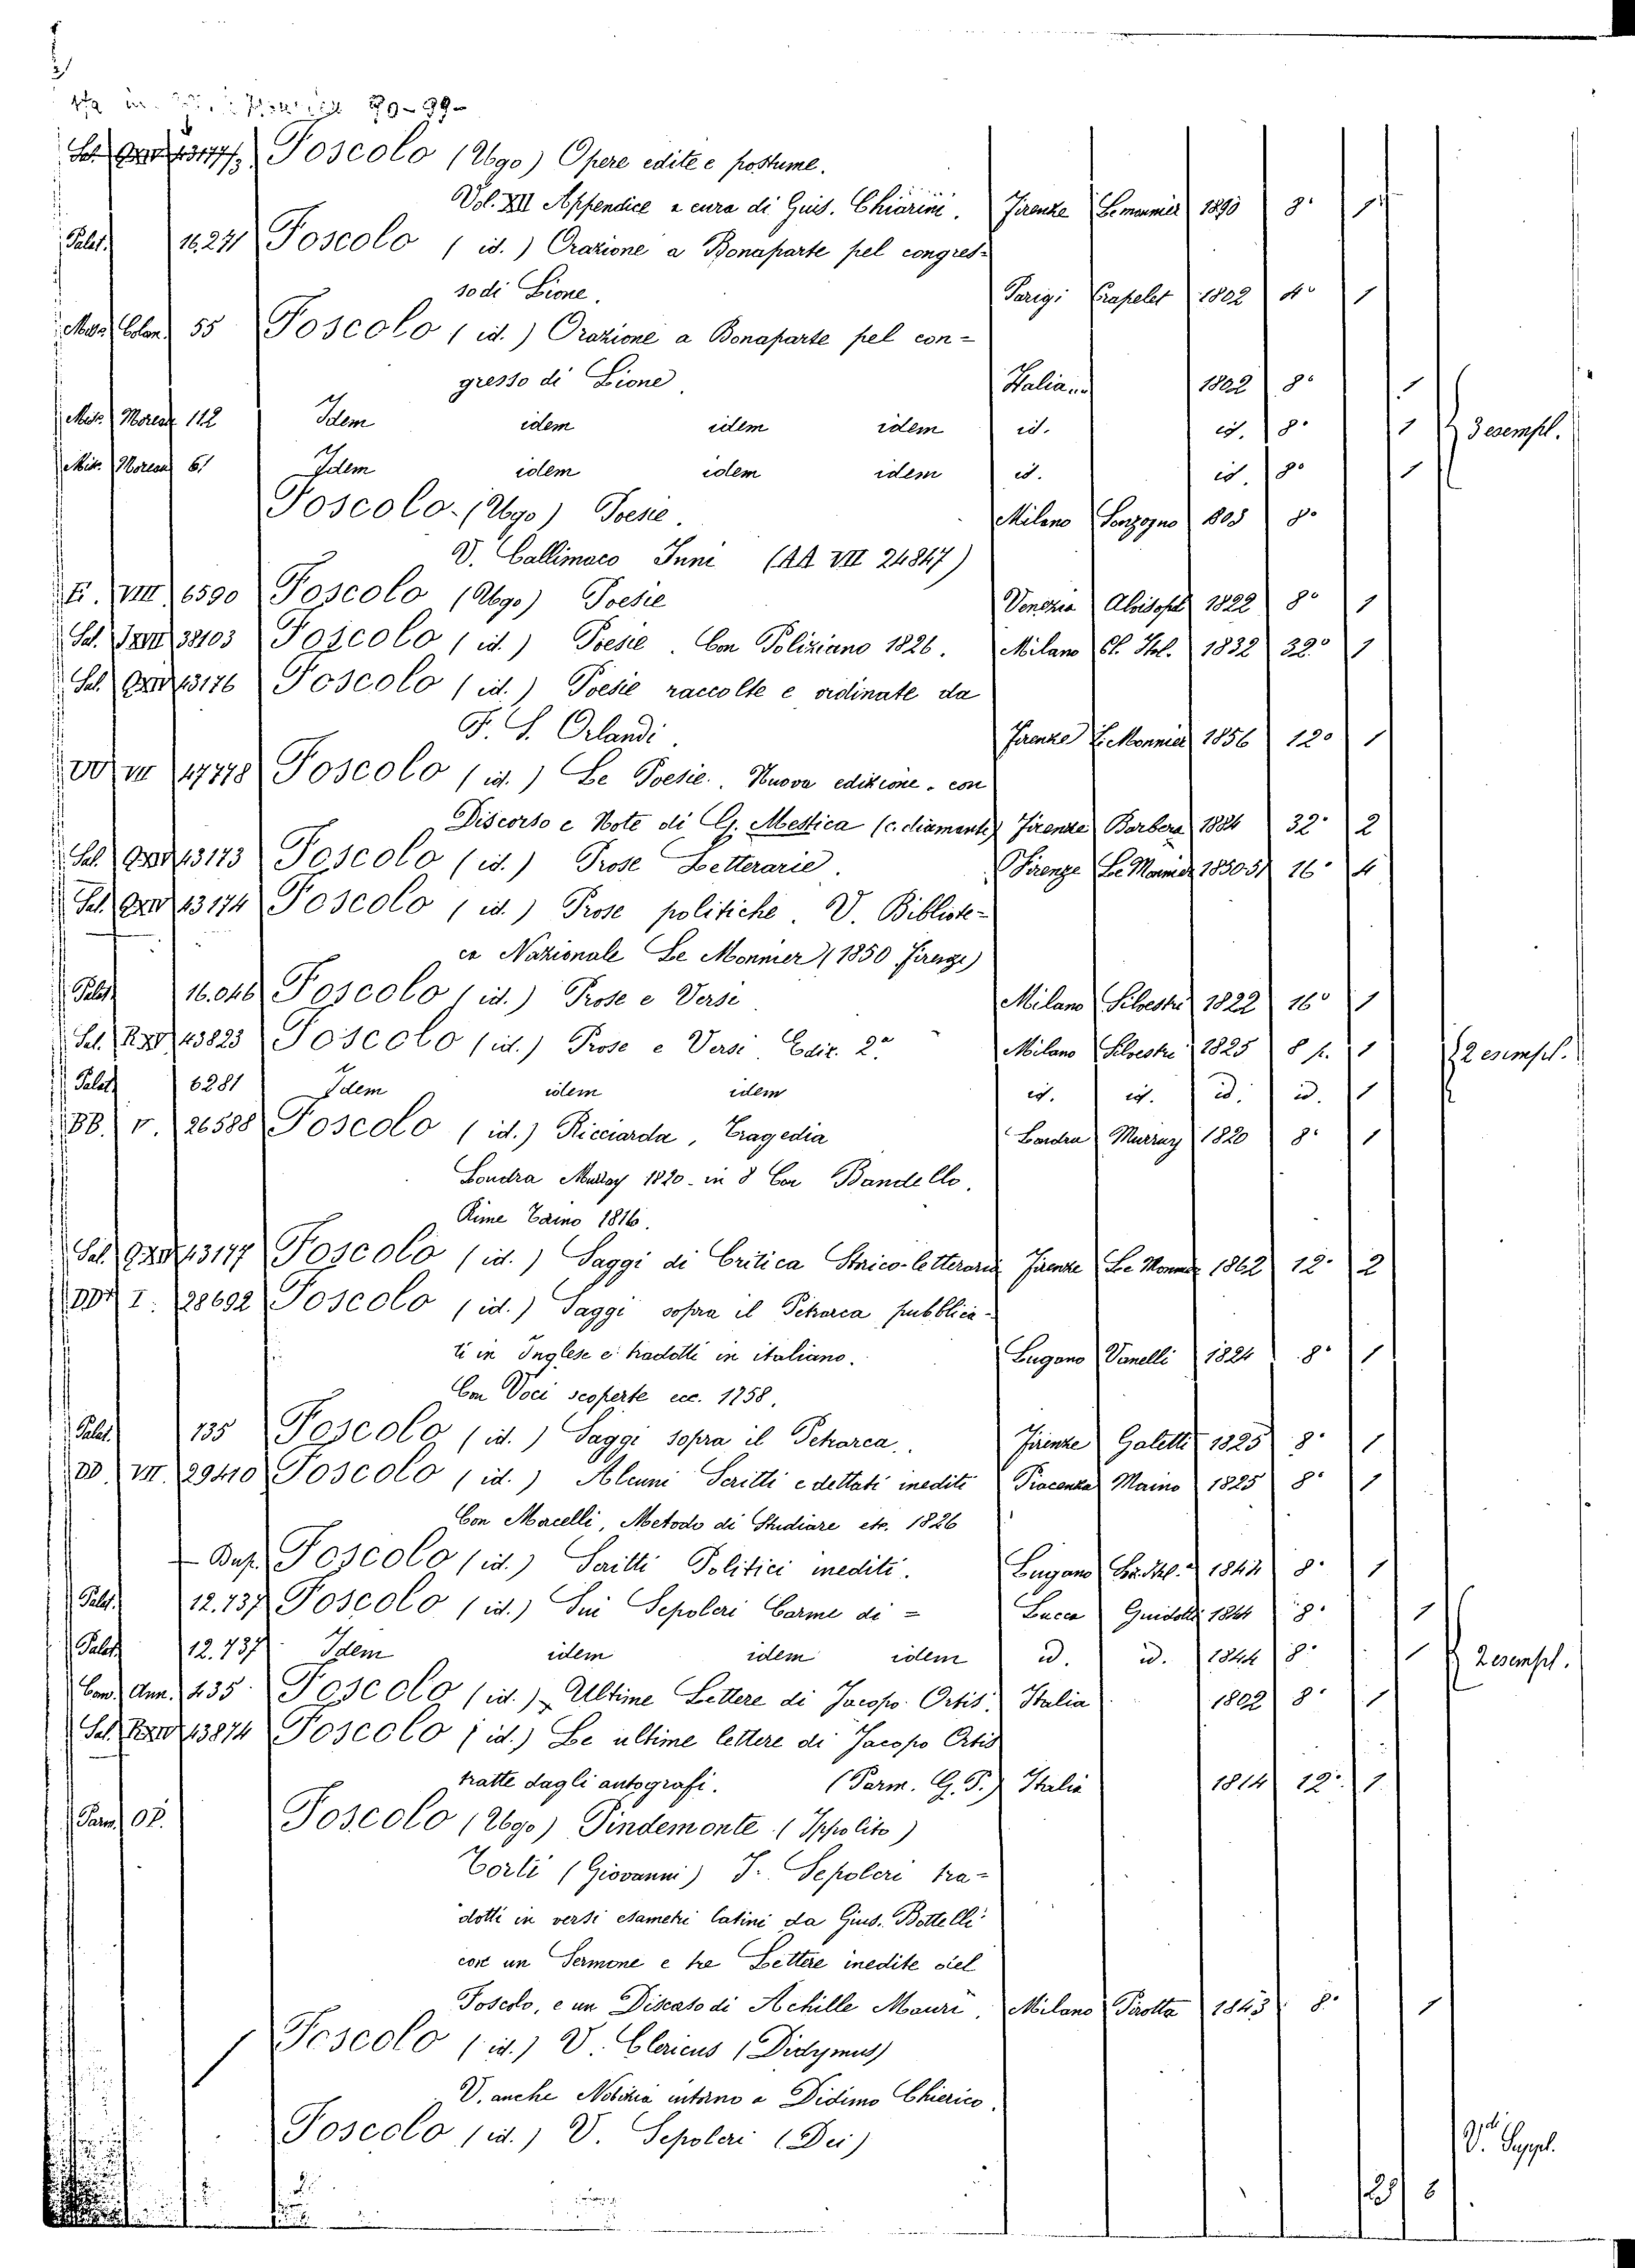 79-99-
Foscolo (Ugo) Opere edite e postume.
Vol. XII Appendice a cura di Gius. Chiarini. Firenze Lemonnier 1890 8° 1
Palat. 16.271 Foscolo (id.) Orazione a Bonaparte pel congres-
so di Lione. Parigi Crapelet 1802 4° 1
Misc. Colom. 55 Foscolo (id.) Orazione a Bonaparte pel con-
gresso di Lione Italia 1802 8° 1
Misc. Moreal. 112 Idem idem idem idem id. id. 8° 1 3 esempl.
Misc. Moreal. 61 Idem idem idem idem id. id. 8° 1
Foscolo (Ugo) Poesie. Milano Sonzogno 1803 8°
V. Callimaco Inni (AA VII 24847)
VIII 6590 Foscolo (Ugo) Poesie Venezia Alvisopoli 1822 8° 1
Sal. 38103 Foscolo (id.) Poesie. Con Poliziano 1826. Milano Cl. Ital. 1832 32° 1
Sal. 43176 Foscolo (id.) Poesie raccolte e ordinate da
F. S. Orlandi. Firenze Le Monnier 1856 12° 1
VV VII 47778 Foscolo (id.) Le Poesie. Nuova edizione con
Discorso e Note di G. Mestica (c. diamante) Firenze Barbera 1884 32° 2
Sal. 43173 Foscolo (id.) Prose Letterarie. Firenze Le Monnier 1850-51 16° 4
Sal. 43174 Foscolo (id.) Prose politiche. V. Bibliote-
ca Nazionale Le Monnier (1850 Firenze)
Palat. 16.046 Foscolo (id.) Prose e Versi Milano Silvestri 1822 16° 1
Sal. 43823 Foscolo (id.) Prose e Versi. Ediz. 2ª Milano Silvestri 1825 8 p. 1 2 esempl.
Palat. 6281 Idem idem idem id. id. id. id. 1
BB. V. 26588 Foscolo (id.) Ricciarda, Tragedia Londra Murray 1820 8° 1
Londra Murray 1820 in 8 Con Bandello,
Rime Torino 1816.
Sal. 43177 Foscolo (id.) Saggi di Critica Storico-letteraria Firenze Le Monnier 1862 12° 2
I. 28692 Foscolo (id.) Saggi sopra il Petrarca pubblica-
ti in Inglese e tradotti in italiano. Lugano Vanelli 1824 8° 1
Con Voci scoperte ecc. 1758.
Palat. 135 Foscolo (id.) Saggi sopra il Petrarca. Firenze Galletti 1825 8° 1
DD VII. 29410 Foscolo (id.) Alcuni Scritti e dettati inediti Piacenza Maino 1825 8° 1
Con Morcelli, Metodo di Studiare etc. 1826
Dup. Foscolo (id.) Scritti Politici inediti. Lugano 1844 8° 1
Palat. 12.737 Foscolo (id.) Dei Sepolcri Carme di = Lucca Guidotti 1844 8° 1
Palat. 12.737 Idem idem idem idem id. id. 1844 8° 1 2 esempl.
Ann. 435 Foscolo (id.) Ultime Lettere di Jacopo Ortis. Italia 1802 8° 1
Sal. 43874 Foscolo (id.) Le ultime lettere di Jacopo Ortis
tratte dagli autografi. (Parm. G. P.) Italia 1814 12° 1
Foscolo (Ugo) Pindemonte (Ippolito)
Torti (Giovanni) I. Sepolcri tra-
dotti in versi esametri latini da Gius. Bottelli
con un Sermone e tre Lettere inedite del
Foscolo, e un Discorso di Achille Mauri. Milano Pirotta 1843 8° 1
Foscolo (id.) V. Clericus (Didymus)
V. anche Notizia intorno a Didimo Chierico.
Foscolo (id.) V. Sepolcri (Dei)
V. Suppl.